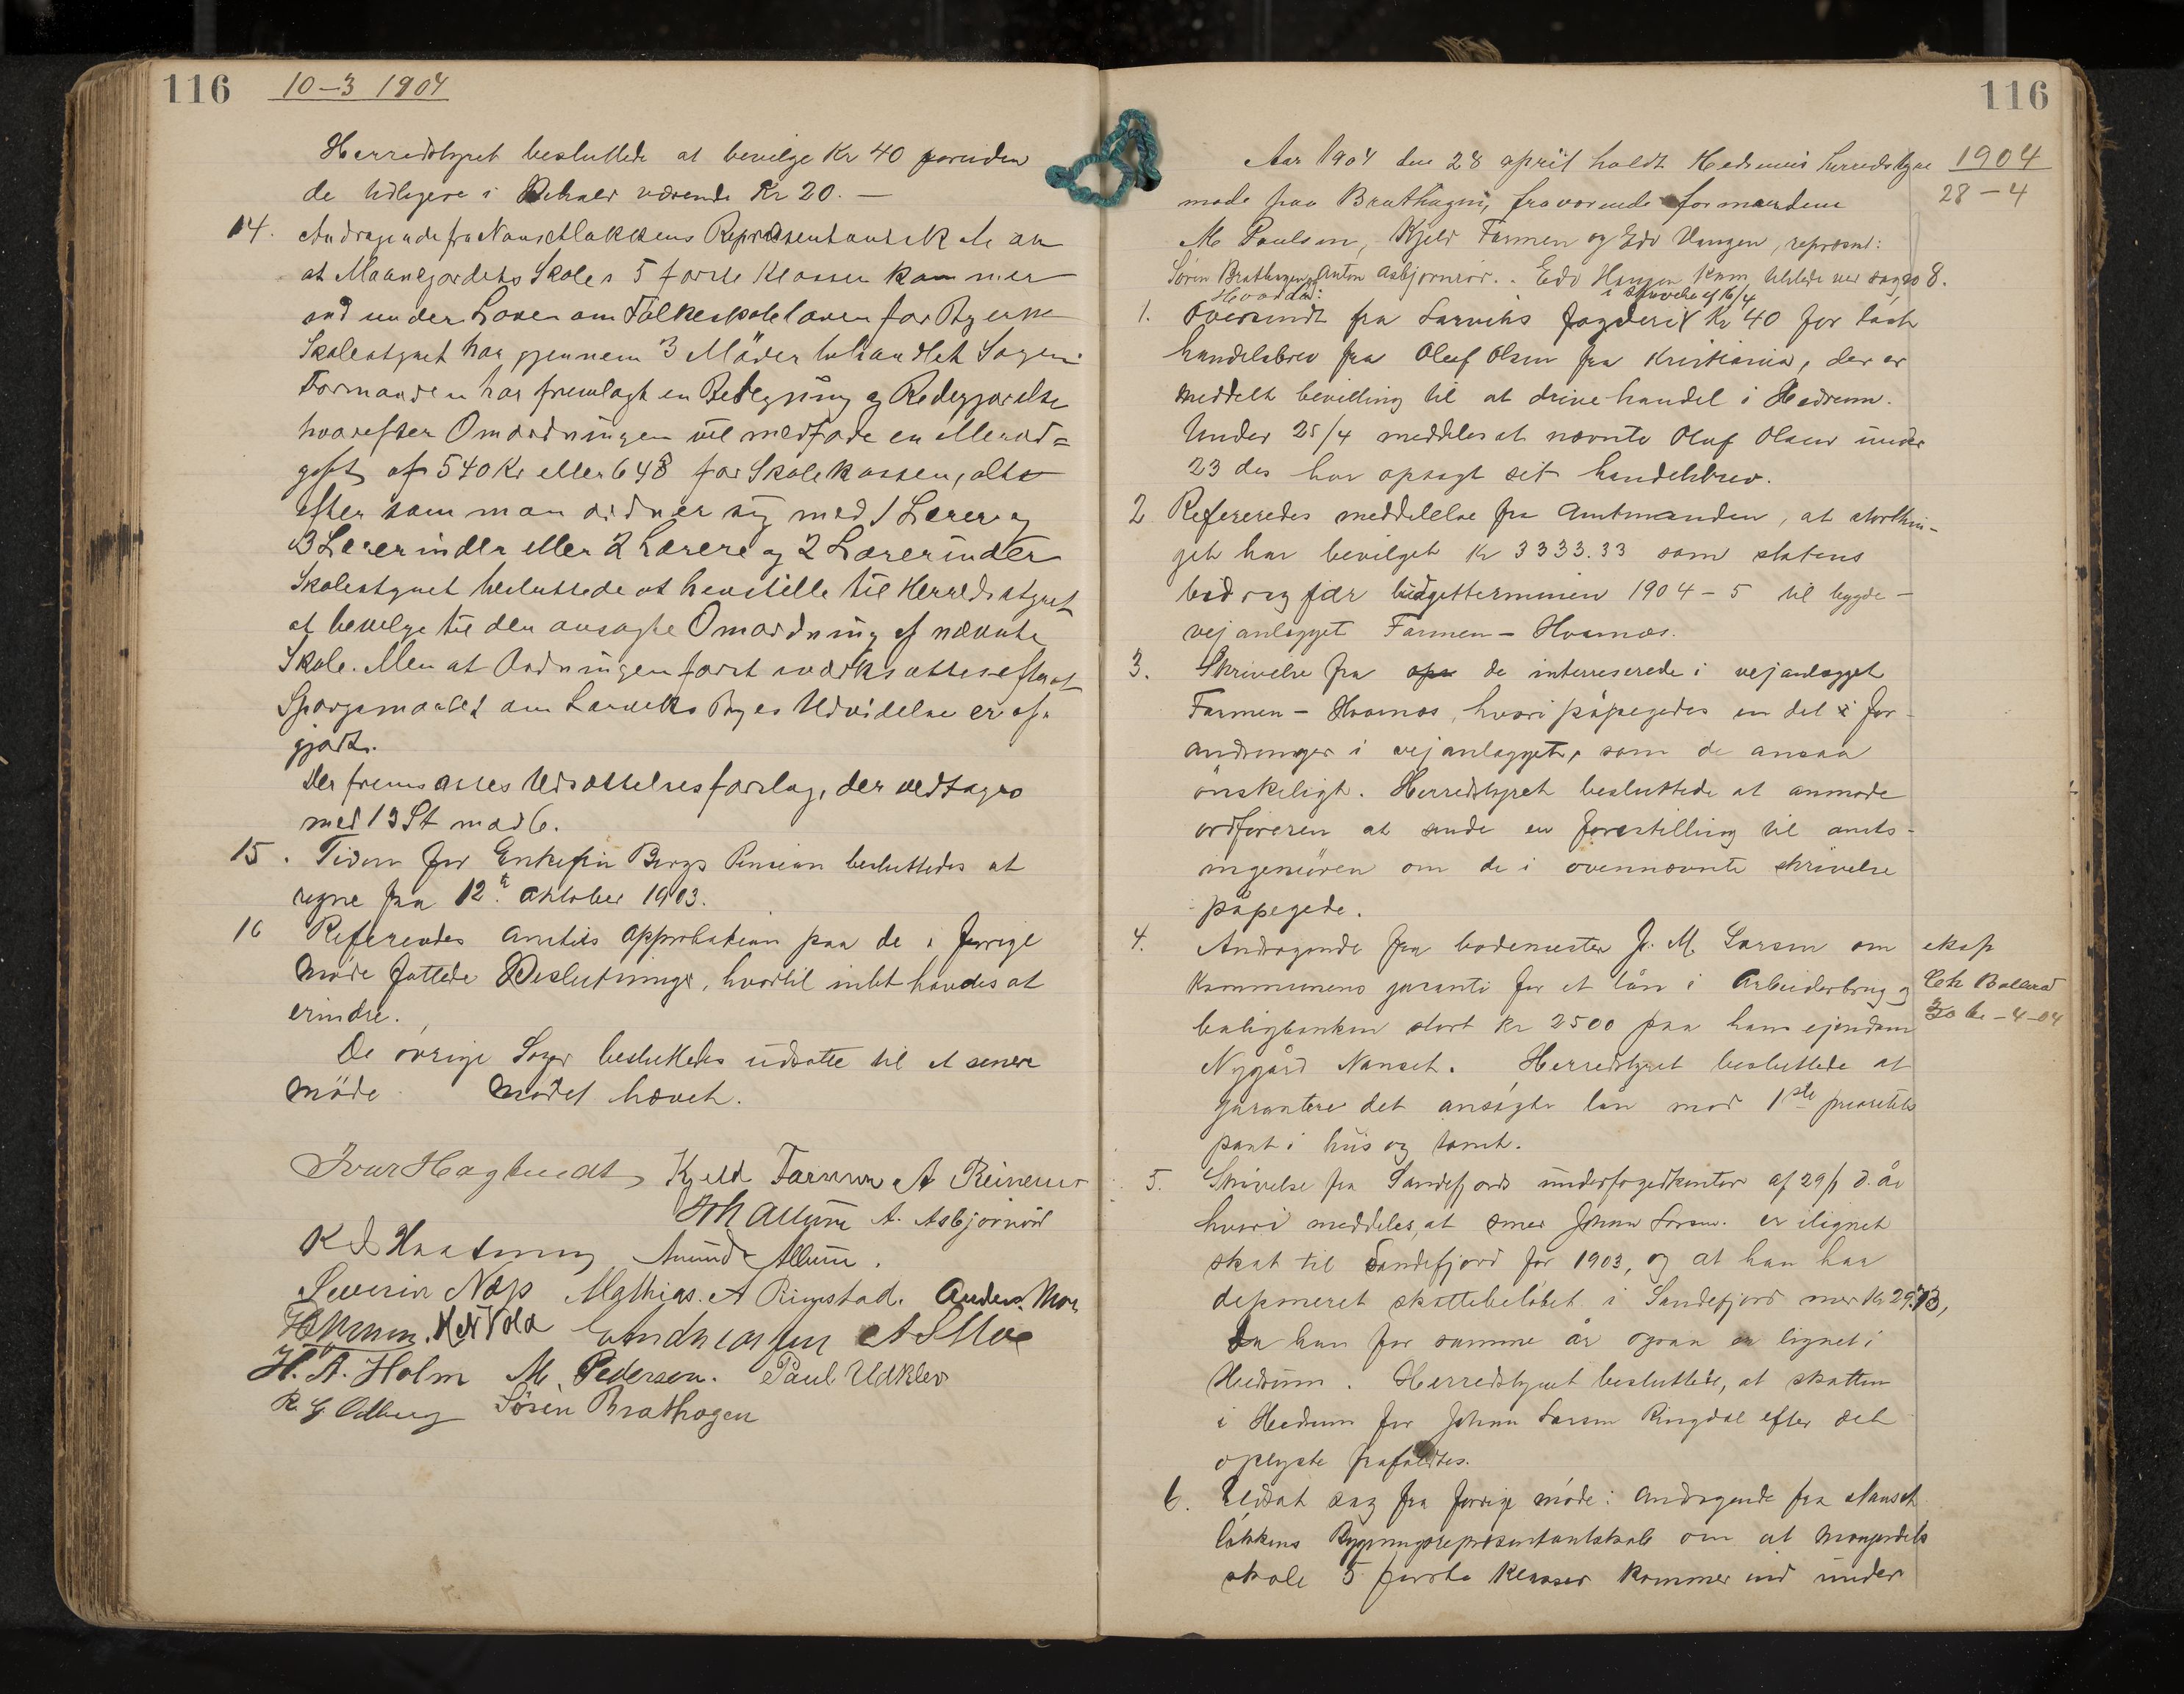 116 10-3 1904
Herredstyret besluttede at bevilge Kr 40 foruden
de tidligere i Behold værende Kr 20. —
14. Andragende fra Nansetløkkens Repræsentantsk. om
at Maangjordets Skoles 5 første Klasser kommer
ind under Loven om Folkeskoleloven for Byerne
Skolestyret har gjennem 3 Møder behandlet Sagen.
Formanden har fremlagt en Betegning og Redegjørelse
hvorefter Omordningen vil medføre en Merud=
gift af 540 Kr eller 648 for Skolekassen, alt
efter som man ordner sig med 1 Lærer og
3 Lærerinder eller 2 Lærere og 2 Lærerinder
Skolestyret besluttede at henstille til Herredsstyret
at bevilge til den ansøgte Omordning af nævnte
Skole. Men at Ordningen først iværksættes efterat
Spørgsmaalet om Larviks Byes Udvidelse er af-
gjort.
Der fremsattes Udsættelsesforslag, der vedtages
med 13 St mod 6.
15. Tiden for Enkefru Bergs Pension besluttedes at
regne fra 12te oktober 1903.
16 Refereredes amtets approbation paa de i forrige
møde fattede Beslutninger, hvortil intet havdes at
erindre.
De øvrige Sager besluttedes udsatte til et senere
møde mødet hævet.
Ivar Hagtvedt, Kjeld Farmen A Reinersen
Joh Allum A. Asbjørnrød
K Haatvung Amund Allum.
Severin Næss Mathias. A Ringstad. Anders Moe
H. A. Holm M Pedersen. Paul Udklev
R G Odberg Søren Brathagen
116
Aar 1904 den 28 april holdt Hedrums herredstyre 1904
møde paa Brathagen, fraværende formændene 28-4
M Paulsen, Kjeld Farmen og Edv Vangen, repræsent:
Søren Brathagen og Anton Asbjørnrød.. Edv Hansen kom tilstede ved sag no 8.
Hvordan: i skrivelse af 16/4
1. Oversendt fra Larviks fogderi Kr 40 for løst
handelsbrev fra Oluf Olsen fra Kristiania, der er
meddelt bevilling til at drive handel i Hedrum.
Under 25/4 meddeles at nævnte Oluf Olsen under
23 ds har opsagt sit handelsbrev.
2 Refereredes meddelelse fra Amtmanden, at storthin-
get har bevilget Kr 3333.33 som statens
bidrag for budgetterminen 1904-5 til bygde-
vejanlægget Farmen - Hvarnes.
3. Skrivelse fra de interreserede i vejanlægget
Farmen - Hvarnes, hvori påpegedes en del for-
andringer i vejanlægget, som de ansaa
ønskeligt. Herredstyret besluttede at anmode
ordføreren at sende en forestilling til amts-
ingeniøren om de i ovennævnte skrivelse
påpegede.
4. Andragende fra bademester J. M. Larsen om eksp
Kommunens garanti for et lån i Arbeiderbrug og
boligbanken stort Kr 2500 paa hans ejendom
Nygård Nanset. Herredstyret besluttede at
garantere det ansøgte lån mod 1ste prioritets
pant i hus og tomt.
5. Skrivelse fra Sandefjords underfogedkontor af 29/1 d. år
hvori meddeles, at smed Johan Larsen er ilignet
skat til Sandefjord for 1903, og at han har
deponeret skattebeløbet i Sandefjord med Kr 29.73,
da han for samme år ogsaa er lignet i
Hedrum. Herredstyret besluttede, at skatten
i Hedrum for Johan Larsen Ringdal efter det
oplyste frafaldtes.
6. Udsat sag fra forrige møde: Andragende fra Nanset
løkkens Bygningsrepræsentantskab om at Mangjordets
skole 5 første Klasser kommer ind under